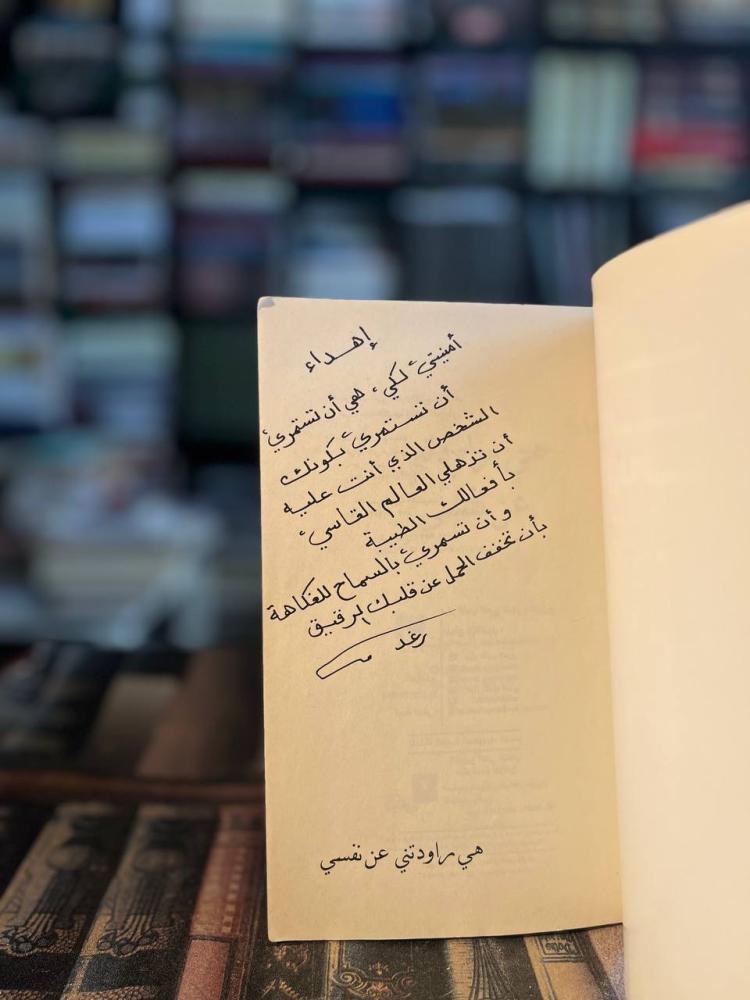 إهداء
أمنيتي لكي، هي أن تستمري
أن تستمري بكونك
الشخص الذي أنت عليه
أن تذهلي العالم القاسي
بأفعالك الطيبة
وأن تسمري بالسماح للفكاهة
بأن تخفف الحمل عن قلبك الرقيق
رغد
هي راودتني عن نفسي